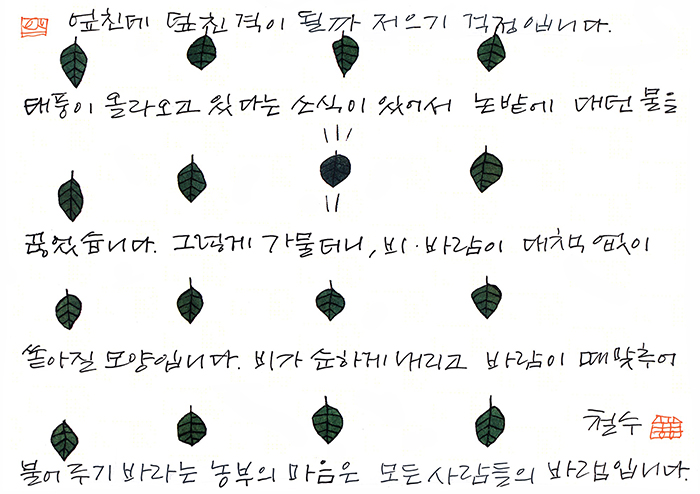 엎친데 덮친 격이 될까 저으기 걱정입니다.
태풍이 올라오고 있다는 소식이 있어서 논밭에 대던 물을
끊었습니다. 그렇게 가물더니, 비·바람이 대책 없이
쏟아질 모양입니다. 비가 순하게 내리고 바람이 때맞추어
철수
불어주기 바라는 농부의 마음은 모든 사람들의 바램입니다.